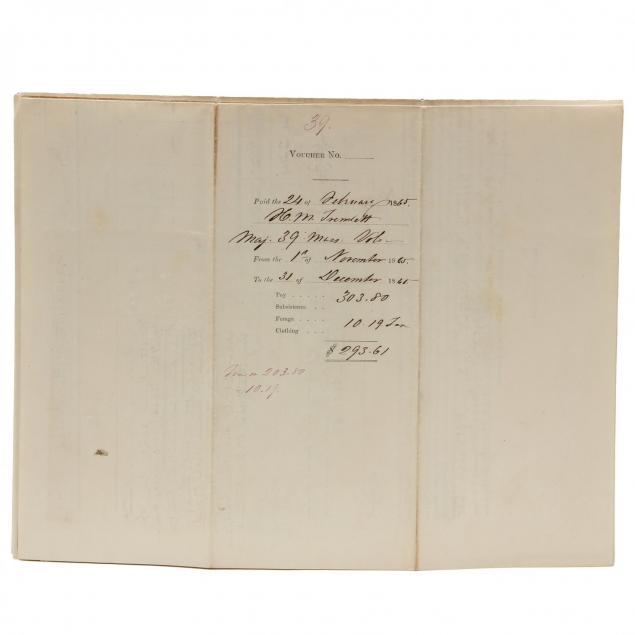 39.
VOUCHER NO.
Paid the 24 of February 1865.
H. M. Tremlett
Maj. 39 Mass. Vols
From the 1st of November 1865.
To the 31 of December 1865
Pay . . . . 303.80
Subsistence . .
Forage . . . .
10.19 Tax
Clothing . . .
$ 293.61
Tax on 203.80
10.19.